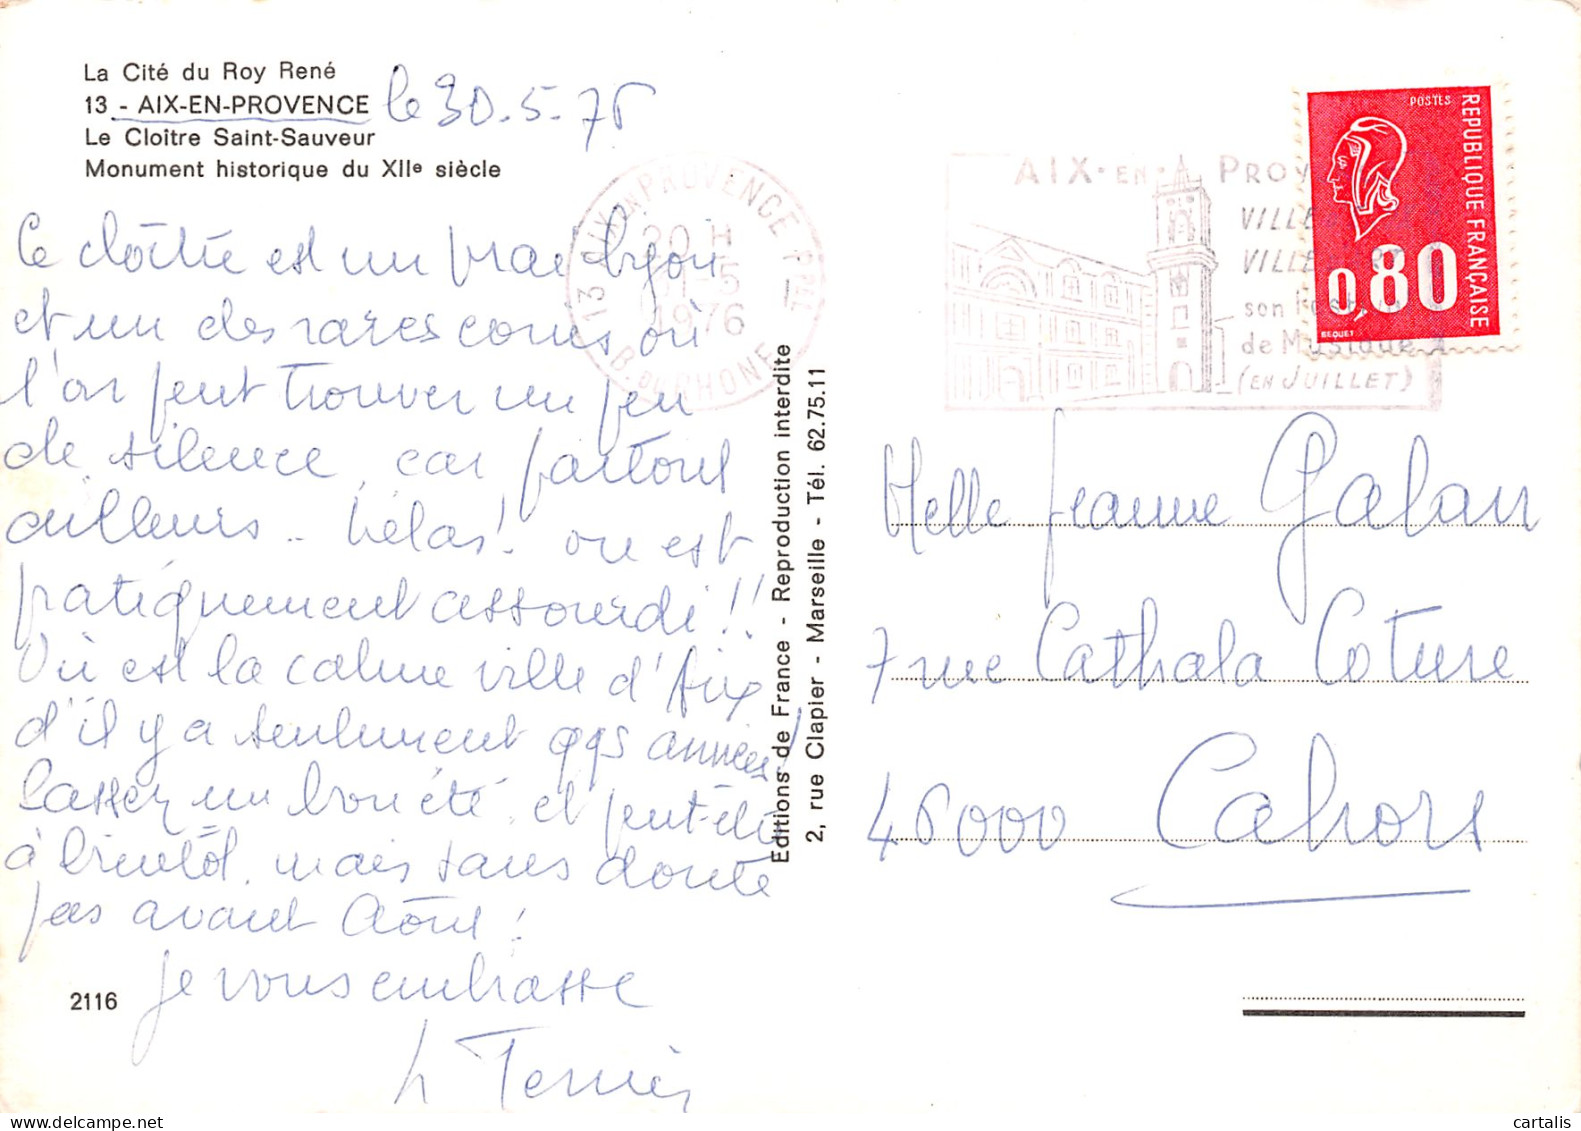 La Cité du Roy René
13 - AIX-EN-PROVENCE
Le Cloître Saint-Sauveur
Monument historique du XIIe siècle
le 30.5.76
Ce cloître est un vrai bijou
et un des rares coins où
l'on peut trouver un peu
de silence, car partout
ailleurs.. hélas! on est
pratiquement assourdi!!
Où est la calme ville d'Aix
d'il y a seulement qqs années!
Passez un bon été, et peut-être
à bientôt, mais sans doute
pas avant Août!
je vous embrasse
2116
Editions de France - Reproduction interdite
2, rue Clapier - Marseille - Tél. 62.75.11
13 AIX EN PROVENCE PPAL
20 H
31-5
1976
B. DU RHONE
AIX-EN-PROV
VILLE
VILLE
son Festival
de Musique
(EN JUILLET)
POSTES
REPUBLIQUE FRANÇAISE
0,80
BEQUET
Melle Jeanne Galan
7 rue Cathala Coture
46000 Cahors
cartalis